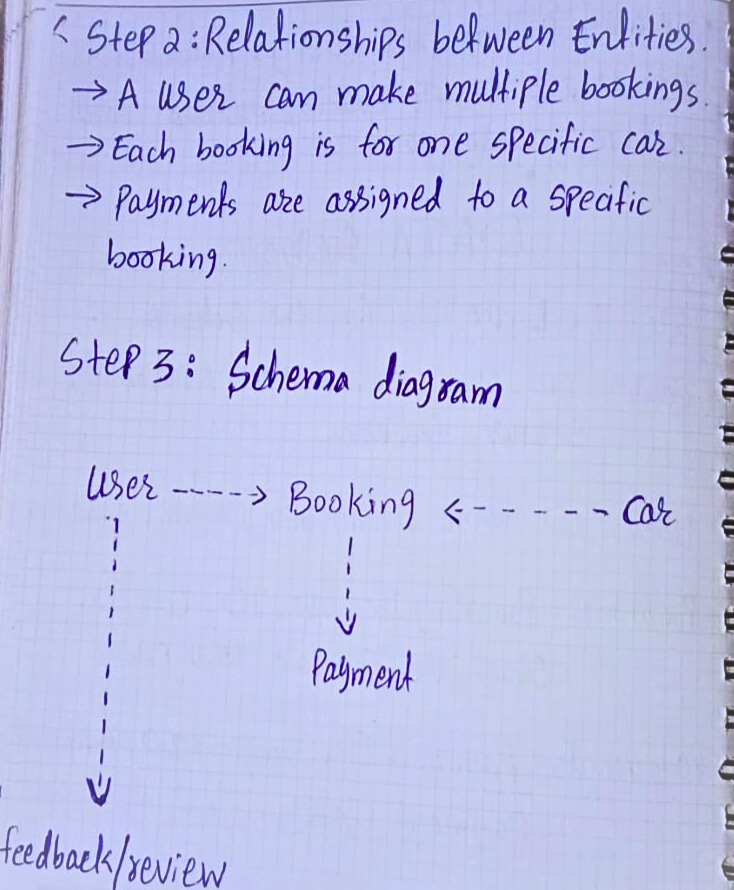 Step 2: Relationships between Entities.
→ A user can make multiple bookings.
→ Each booking is for one specific car.
→ Payments are assigned to a specific
booking.
Step 3: Schema diagram
User -----> Booking <------ Car
Payment
feedback/review